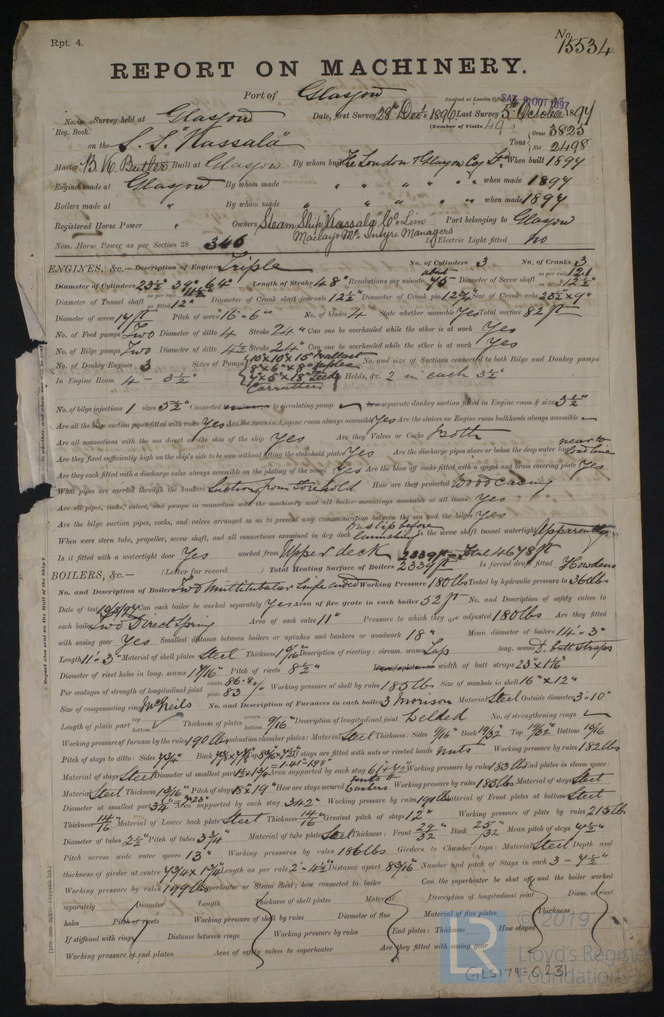 Rpt. 4.
No. 15534
REPORT ON MACHINERY.
Port of Glasgow
SAT. 9 OCT 1897
No. in Survey held at Glasgow Date, first Survey 28th Decr 1896 Last Survey 5th October 1897
Reg. Book. (Number of Visits 49)
on the S.S. "Kassala" Tons Gross 3825 Net 2498
Master B. N. Butler Built at Glasgow By whom built The London & Glasgow Coy Ld When built 1897
Engines made at Glasgow By whom made " " " " " when made 1897
Boilers made at " By whom made " " " " " when made 1897
Registered Horse Power " Owners Steam Ship "Kassala" Co. Lim Port belonging to Glasgow
Maclay & McIntyre Managers
Nom. Horse Power as per Section 28 346 Is Electric Light fitted No
ENGINES, &c.— Description of Engines Triple No. of Cylinders 3 No. of Cranks 3
Diameter of Cylinders 23½" 39" 64" Length of Stroke 48" Revolutions per minute about 75 Diameter of Screw shaft as per rule 12.1 as fitted 12½"
Diameter of Tunnel shaft as fitted 12" Diameter of Crank shaft journals 12½" Diameter of Crank pin Size of Crank webs 23½" x 9"
Diameter of screw 17 ft Pitch of screw 16-6" No. of blades 4 State whether moveable Yes Total surface 82 ft
No. of Feed pumps Two Diameter of ditto 4 Stroke 24" Can one be overhauled while the other is at work Yes
No. of Bilge pumps Two Diameter of ditto 4½ Stroke 24" Can one be overhauled while the other is at work Yes
No. of Donkey Engines 3 Sizes of Pumps 10 x 10 x 15" Ballast No. and size of Suctions connected to both Bilge and Donkey pumps
In Engine Room 4 - 3½" In Holds, &c. 2 in each 3½"
No. of bilge injections 1 sizes 5½" Connected to circulating pump Is a separate donkey suction fitted in Engine room & size 3½"
Are all the bilge suction pipes fitted with roses Yes Are the roses in Engine room always accessible Yes Are the sluices on Engine room bulkheads always accessible
Are all connections with the sea direct on the skin of the ship Yes Are they Valves or Cocks Both
Are they fixed sufficiently high on the ship's side to be seen without lifting the stokehold plates Yes Are the discharge pipes above or below the deep water line near to load line
Are they each fitted with a discharge valve always accessible on the plating of the vessel Yes Are the blow off cocks fitted with a spigot and brass covering plate Yes
What pipes are carried through the bunkers Suctions from Forehold How are they protected Wood casing
Are all pipes, cocks, valves, and pumps in connection with the machinery and all boiler mountings accessible at all times Yes
Are the bilge suction pipes, cocks, and valves arranged so as to prevent any communication between the sea and the bilges Yes
When were stern tube, propeller, screw shaft, and all connections examined in dry dock On slip before launching Is the screw shaft tunnel watertight Apparently
Is it fitted with a watertight door Yes worked from Upper deck
BOILERS, &c.— (Letter for record ) Total Heating Surface of Boilers 2339 ft Is forced draft fitted Howdens
No. and Description of Boilers Two Multitubular Single ended Working Pressure 180 lbs Tested by hydraulic pressure to 360 lbs
Date of test Can each boiler be worked separately Yes Area of fire grate in each boiler 52 ft No. and Description of safety valves to
each boiler Two Direct Spring Area of each valve 11" Pressure to which they are adjusted 180 lbs Are they fitted
with easing gear Yes Smallest distance between boilers or uptakes and bunkers or woodwork 18" Mean diameter of boilers 14'-3"
Length 11'-3" Material of shell plates Steel Thickness Description of riveting: circum. seams Lap long. seams D. butt straps
Diameter of rivet holes in long. seams Pitch of rivets 8½" width of butt straps
Per centages of strength of longitudinal joint plate 83 Working pressure of shell by rules 185 lbs Size of manhole in shell 16" x 12"
Size of compensating ring McNeils No. and Description of Furnaces in each boiler 3 Morison Material Steel Outside diameter 3'-10"
Length of plain part Thickness of plates 9/16" Description of longitudinal joint Welded No. of strengthening rings
Working pressure of furnace by the rules 190 lbs Combustion chamber plates: Material Steel Thickness: Sides 9/16" Back 19/32 Top Bottom
Pitch of stays to ditto: Sides Back If stays are fitted with nuts or riveted heads nuts Working pressure by rules 182 lbs
Material of stays Steel Diameter at smallest part Area supported by each stay Working pressure by rules 183 lbs End plates in steam space:
Material Steel Thickness Pitch of stays 18 x 19" How are stays secured Working pressure by rules 183 lbs Material of stays Steel
Diameter at smallest part Area supported by each stay 342" Working pressure by rules Material of Front plates at bottom Steel
Thickness 14/16 Material of Lower back plate Steel Thickness 14/16 Greatest pitch of stays 12" Working pressure of plate by rules 215 lbs
Diameter of tubes 2½" Pitch of tubes 3¾" Material of tube plates Steel Thickness: Front Back 25/32 Mean pitch of stays
Pitch across wide water spaces 13" Working pressures by rules 186 lbs Girders to Chamber tops: Material Steel Depth and
thickness of girder at centre Length as per rule Distance apart Number and pitch of Stays in each
Working pressure by rules 199 lbs Superheater or Steam chest; how connected to boiler Can the superheater be shut off and the boiler worked
separately Diameter Length Thickness of shell plates Material Description of longitudinal joint Diam. of rivet
holes Pitch of rivets Working pressure of shell by rules Diameter of flue Material of flue plates Thickness
If stiffened with rings Distance between rings Working pressure by rules End plates: Thickness How stayed
Working pressure of end plates Area of safety valves to superheater Are they fitted with easing gear
© 2019
Lloyd's Register
Foundation
LR
GLS179-0231